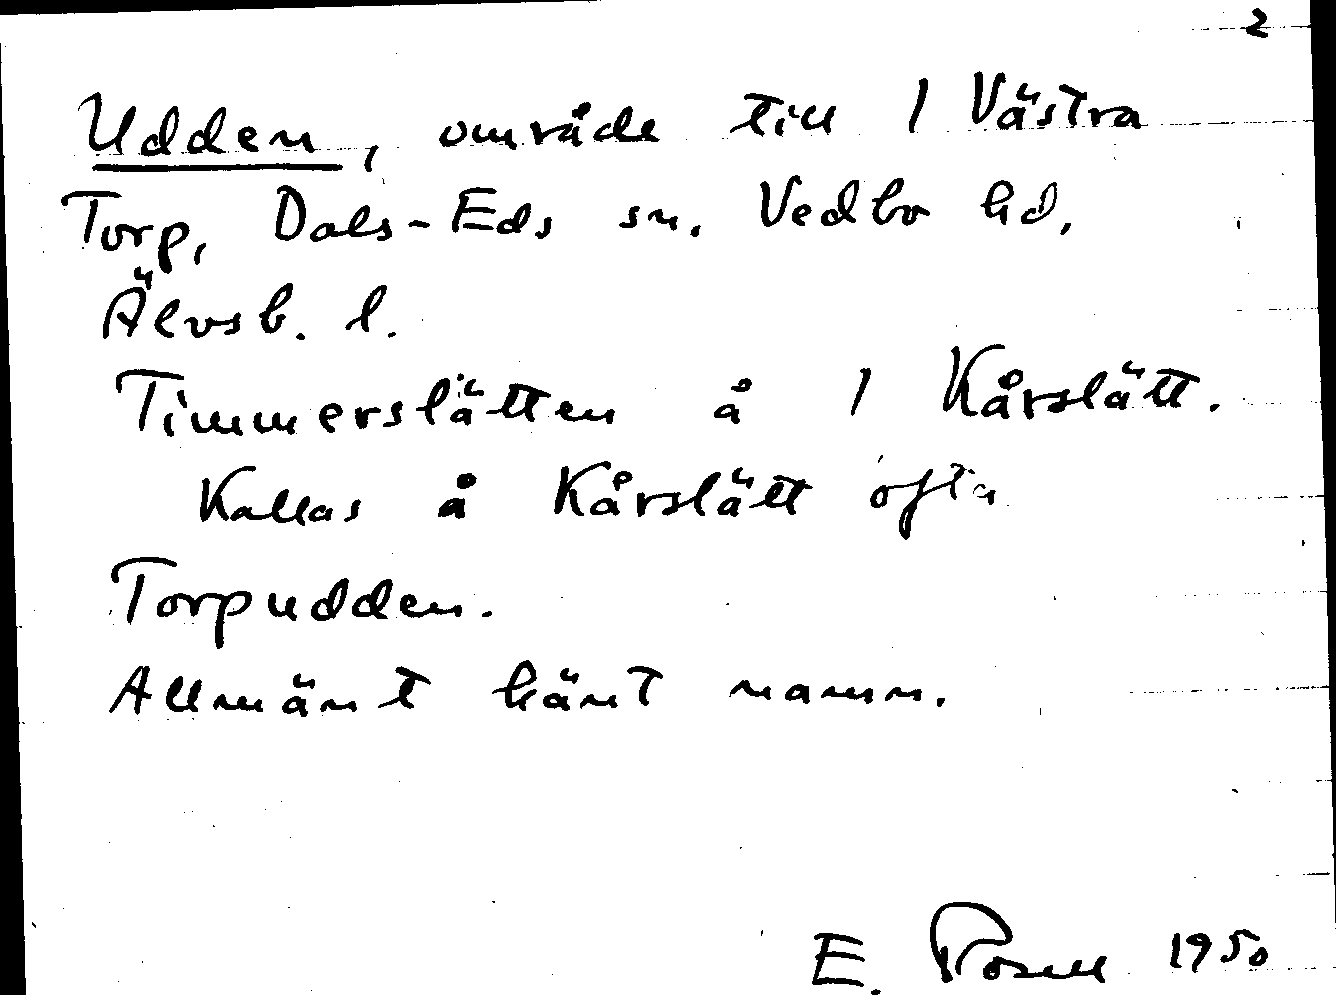 2
Udden, område till 1 Västra
Torp, Dals-Eds sn. Vedbo hd,
Älvsb. l.
Timmerslätten å 1 Kårslätt.
Kallas å Kårslätt ofta
Torpudden.
Allmänt känt namn.
E. Rosell 1950